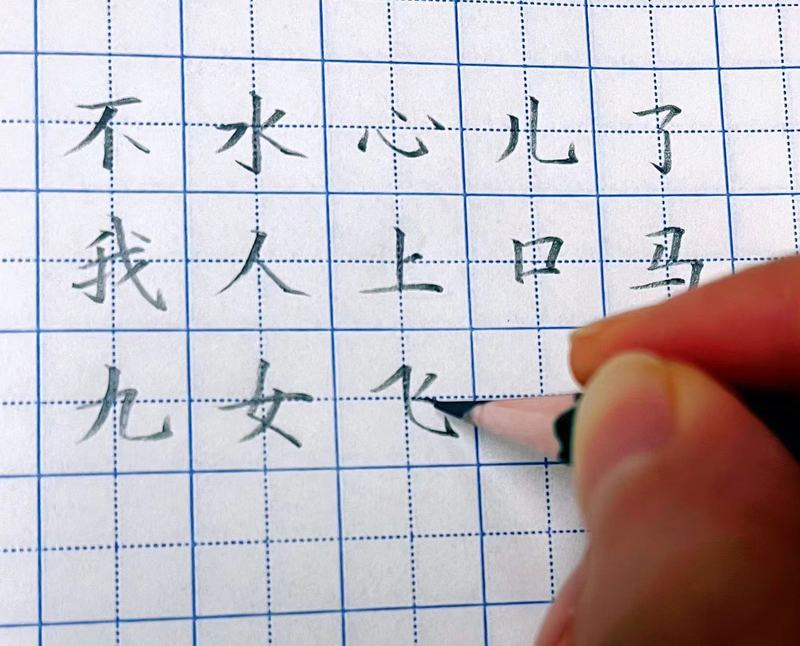 不水心儿了
我人上口马
九女飞